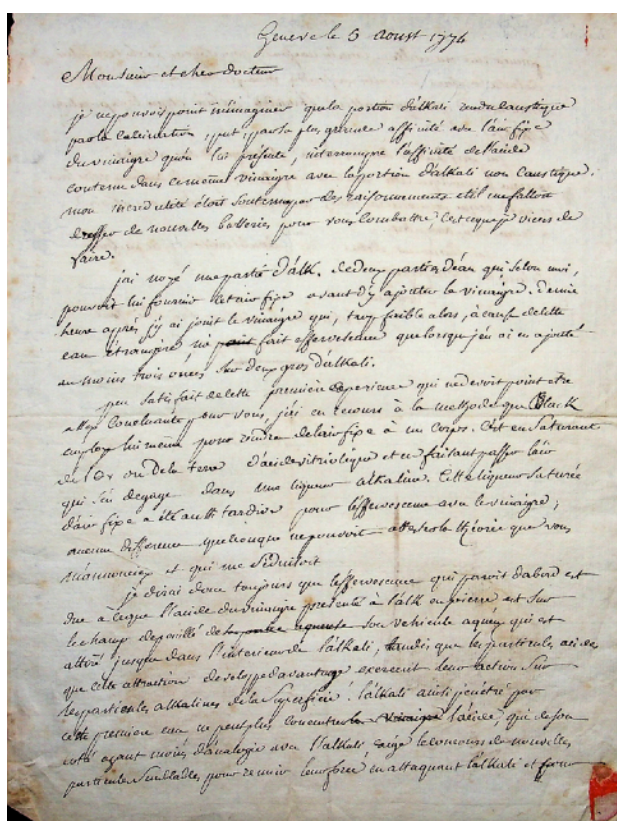 Geneve le 5 aoust 1774
Monsieur et cher docteur
je ne pouvois point m'imaginer que la portion d'alkali rendu caustique
par la calcination, put par sa plus grande affinité avec l'air fixe
du vinaigre qu'on lui présente, interrompre l'affinité de l'acide
contenu dans ce même vinaigre avec la portion d'alkali non caustique.
mon incredulité étoit soutenue par des raisonnements et il me falloit
dresser de nouvelles batteries pour vous combattre, c'est ce que je viens de
faire.
j'ai noyé une partie d'alk. de deux parties d'eau qui selon moi,
pouvoit lui fournir cet air fixe avant d'y ajouter le vinaigre. demie
heure après j'y ai joint le vinaigre qui, trop faible alors, à cause de cette
eau étrangère ne fait effervescence que lorsque j'en ai ajouté
au moins trois onces sur deux gros d'alkali.
peu satisfait de cette première experience qui ne devoit point etre
assez concluante pour vous, j'ai eu recours à la methode que Black
employe lui même pour rendre de l'air fixe à un corps. C'est en saturant
de l' ou de la terre d'acide vitriolique et en faisant passer l'air
qui s'en degage dans une liqueur alkaline. Cette liqueur saturée
d'air fixe a été aussi tardive pour l'effervescence avec le vinaigre;
aucune difference quelconque ne pouvoit la théorie que vous
m'annonciez et qui me séduisoit
je dirai donc toujours que l'effervescence qui paroit d'abord est
due à ce que l'acide du vinaigre présenté à l'alk. en pierre est sur
le champ depouillé de son vehicule aqueux qui est
attiré jusque dans l'interieur de l'alkali, tandis que les particules acides
que cette attraction developpe davantage exercent leur action sur
les particules alkalines de la superficie. l'alkali ainsi penétré par
cette premiere eau ne peut plus concentrer l'acide, qui de son
coté ayant moins d'analogie avec l'alkali exige le concours de nouvelles
particules semblables pour reunir leur force en attaquant l'alkali et